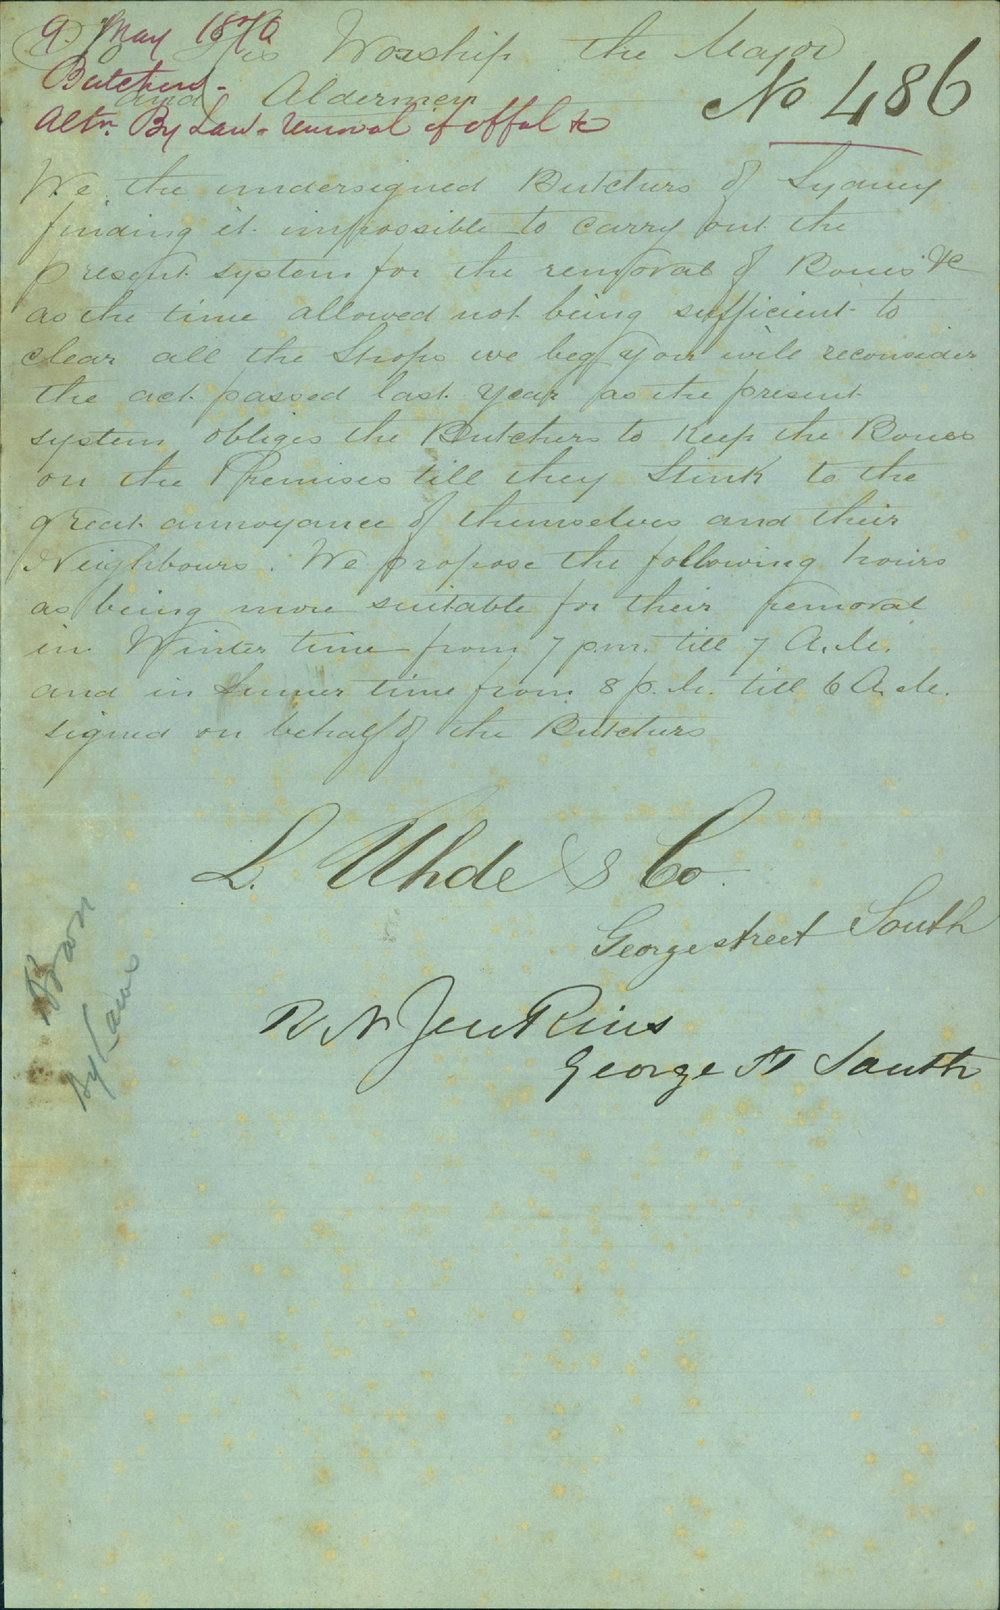 9. May 1876
To His Worship the Mayor
Butchers -
and Aldermen
No 486
Altn. By Law - removal of offal &c
We the undersigned Butchers of Sydney
finding it impossible to carry out the
present system for the removal of Bones &c
as the time allowed not being sufficient to
clear all the Shops we beg you will reconsider
the act passed last year as the present
system obliges the Butchers to Keep the Bones
on the Premises till they Stink to the
great annoyance of themselves and their
Neighbours. We propose the following hours
as being more suitable for their removal
in Winter time from 7 p.m. till 7 A.M.
and in Summer time from 8 p.M. till 6 A.M.
signed on behalf of the Butchers
L. Uhde & Co.
George street South
R N Jenkins
George St South
By Laws